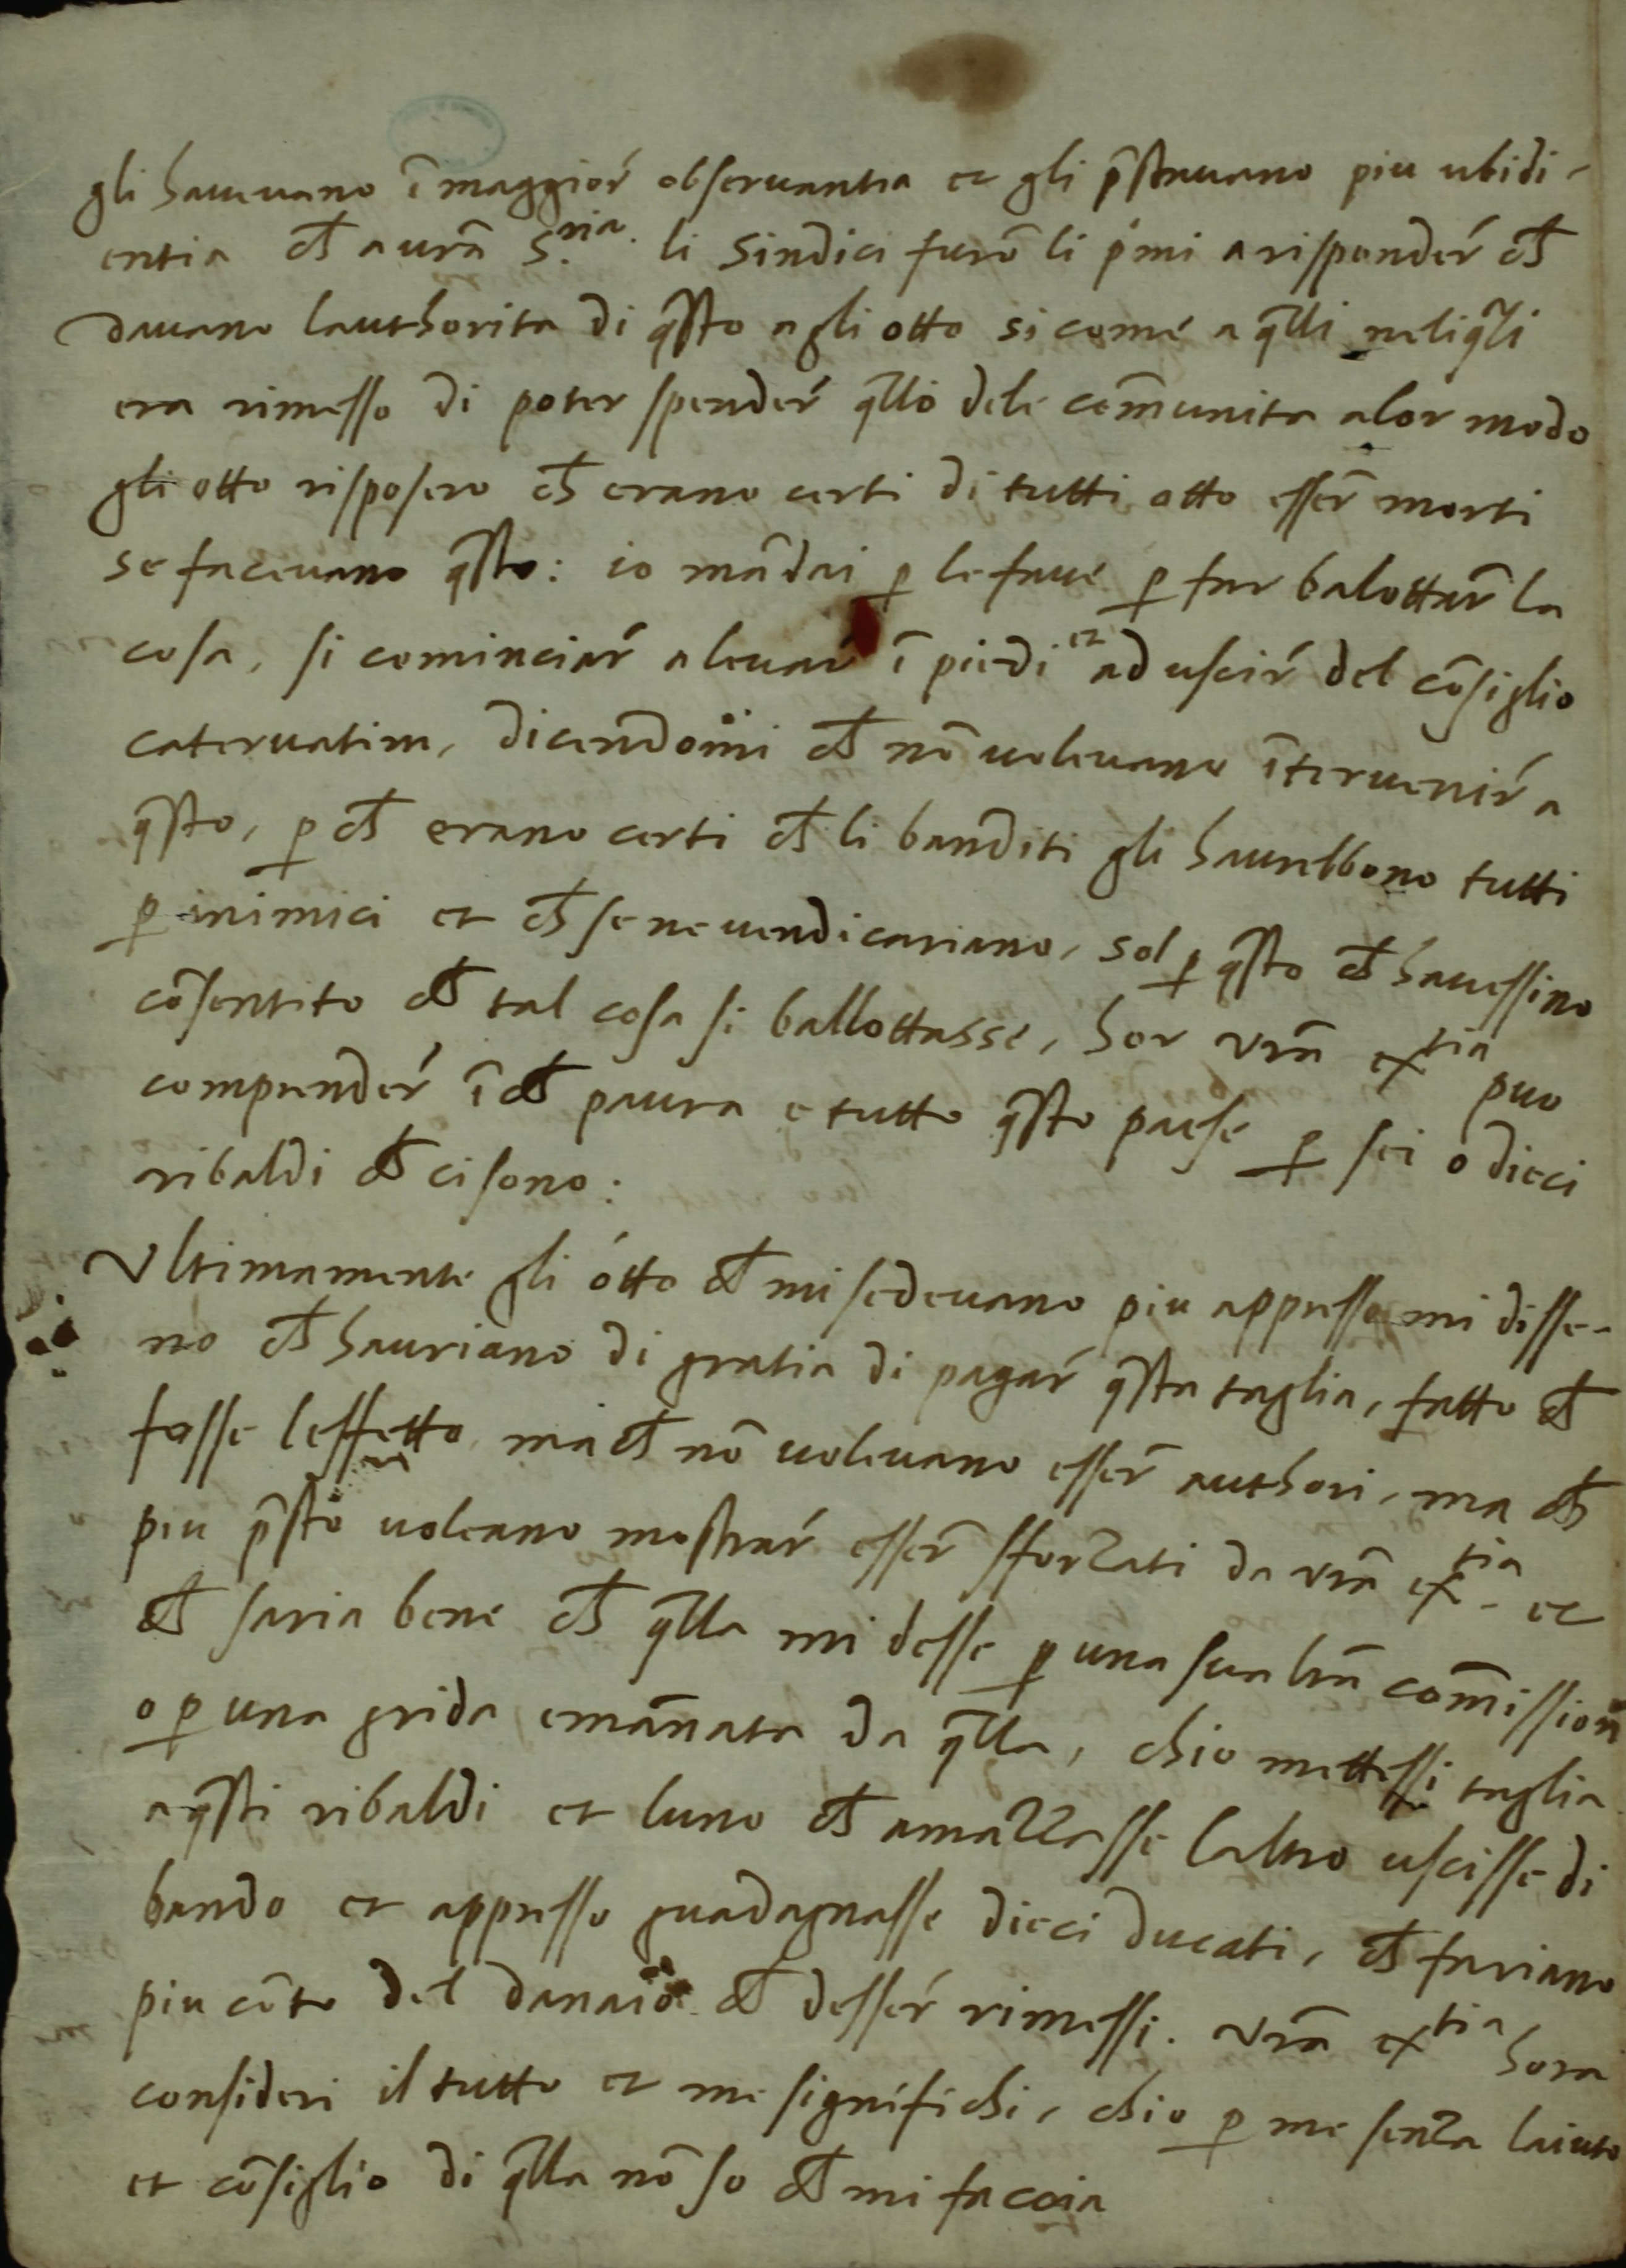 gli haueuano ī maggioŕ obseruantia et gli p̄stauano piu ubidi-
entia ch̄ a urā S.ria. li Sindici furō li ṕmi a rispondeŕ ch̄
dauano lauthorita di q̄sto agli otto si come a q̄lli neli q̄li
era rimesso di poter spendeŕ q̄llo dele com̄unita a lor modo
gli otto risposero ch̄ erano certi di tutti otto esser̄ morti
se faceuano q̄sto: io mādai ꝑ le faue ꝑ far balottar̄ la
cosa, si cominciaŕ a leuaŕ ī piedi et ad usciŕ del cōsiglio
cateruatim, dicendomi ch̄ nō uoleuano īterueniŕ a
q̄sto, ꝑ ch̄ erano certi ch̄ li banditi gli haurebbono tutti
ꝑ inimici et ch̄ se ne uendicariano, sol ꝑ q̄sto ch̄ hauessino
cōsentito ch̄ tal cosa si ballottasse, hor vrā extia puo
comprendeŕ ī ch̄ paura e tutto q̄sto paese ꝑ sei o dieci
ribaldi ch̄ ci sono:
Vltimamente gli otto ch̄ mi sedeuano piu appresso mi disse-
no ch̄ hauriano di gratia di pagaŕ q̄sta taglia, fatto ch̄
fosse leffetto, ma ch̄ nō uoleuano esser̄ authori, ma ch̄
piu p̄sto uoleano mostraŕ esser̄ sforzati da vrā extia. et
ch̄ saria bene ch̄ q̄lla mi desse ꝑ una sua lrā com̄ission
o ꝑ una grida emanata da q̄lla, chio mettessi taglia
a q̄sti ribaldi et luno ch̄ amazzasse laltro uscisse di
bando et appresso guadagnasse dieci ducati, ch̄ fariano
piu cōto del danaio ch̄ desseŕ rimessi. vrā extia hora
consideri il tutto et me significhi, chio ꝑ me senza laiuto
et cōsiglio di q̄lla nō so ch̄ mi faccia